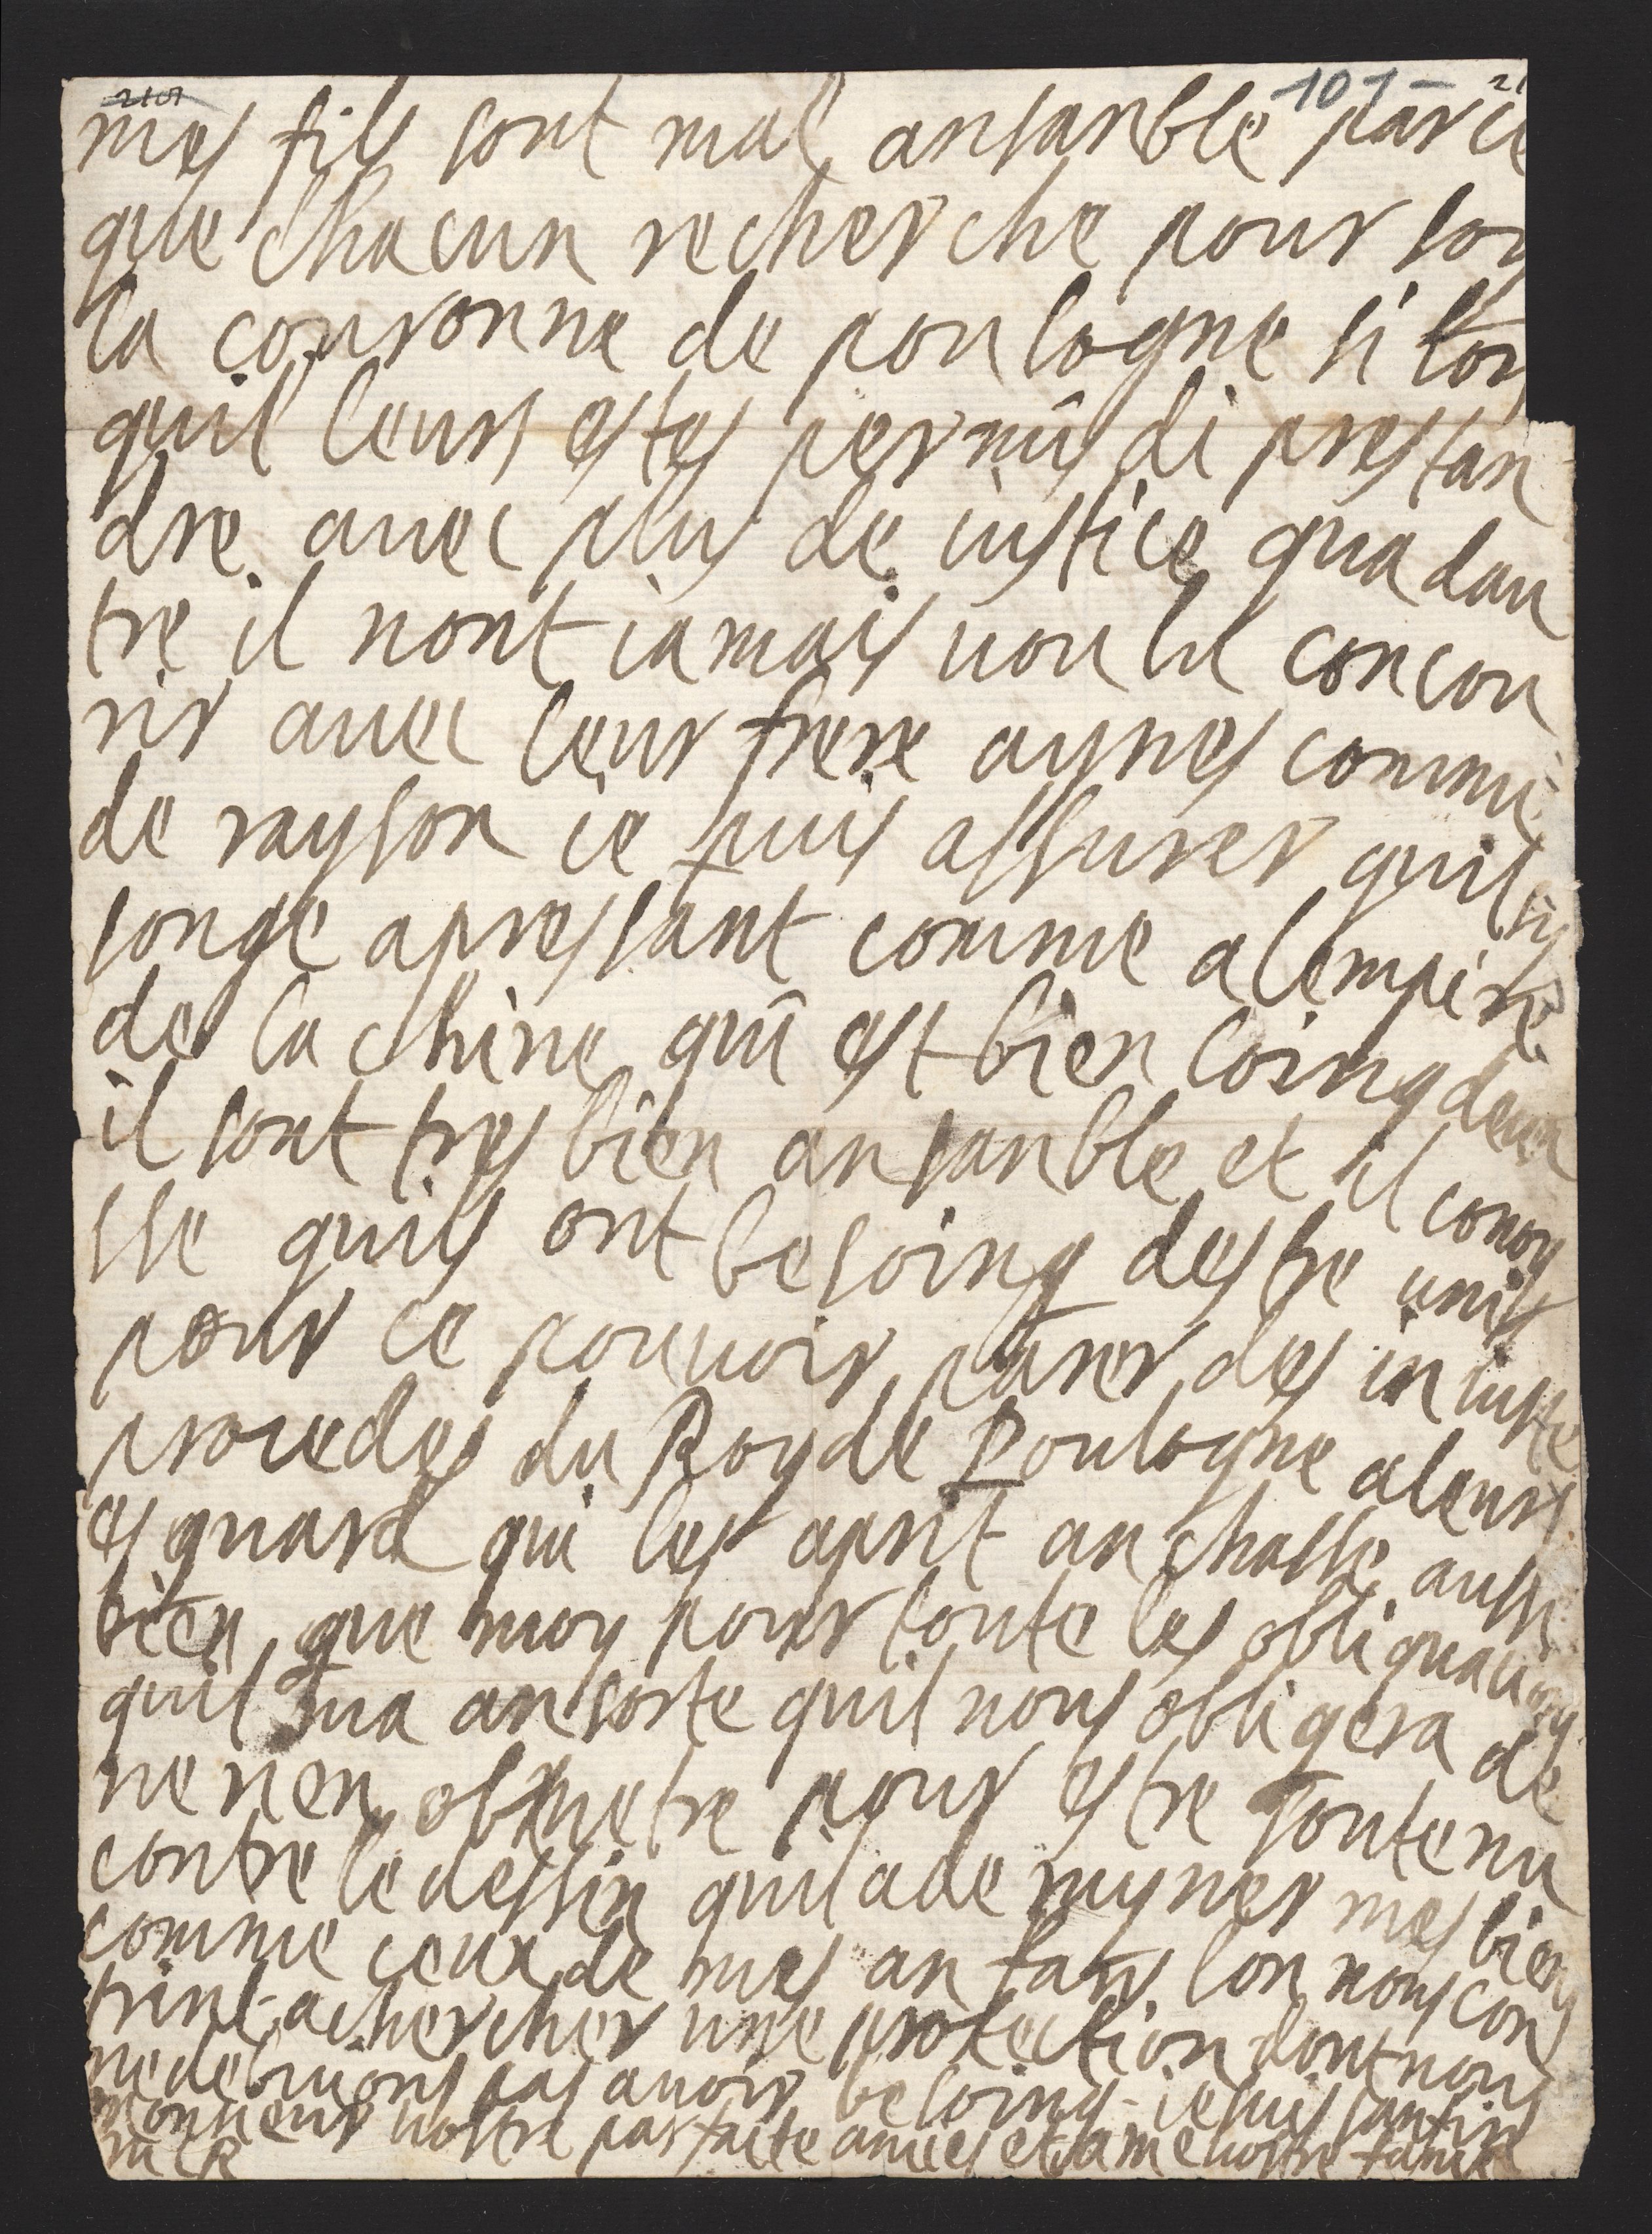 101 - 21
mes fils sont mal ansanble parce
que chacun recherche pour soy
la couronne de poulogne si lors
quil leurs estes permis di prestan
dre auec plus de iustice qua dau
tre il nont iamais uoulu concou
rir auec leur frere aynes comme
de rayson ie puis assurer quil sy
songe apressant comme a lempire
de la chine qui est bien loing deux
il sont tres bien ansanble et il conoy
sse quils ont besoing destre unis
pour ce pouuoir parer des iniuste
procedes du Roy de Poulogne a leurs
esguard qui les aprit an chasse aussi
bien que moy pour toute les obliguations
quil ma an sorte quil nous obligera de
ne rien obmetre pour estre soutenu
contre le dessin quil a de ruyner mes biens
comme ceux de mes anfans lon nous con
trint a chercher une protection dont nous
ne debvrions pas auoir besoing - ie suis sanfin
monsieur vostre parfaite amies et a me vostre
m c R